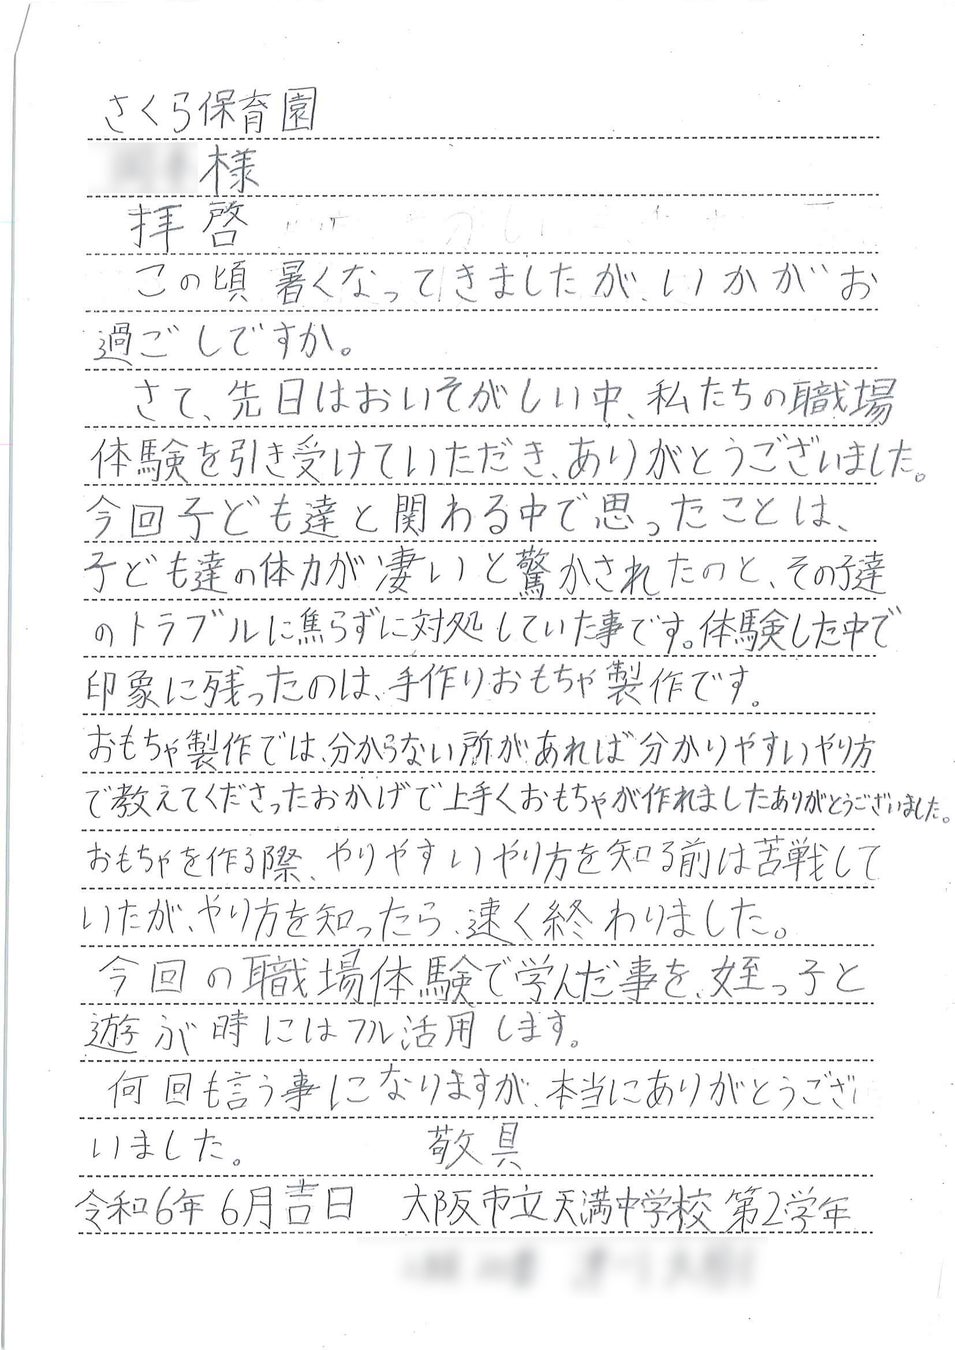 さくら保育園
様
拝啓
この頃暑くなってきましたが、いかがお
過ごしですか。
さて、先日はおいそがしい中、私たちの職場
体験を引き受けていただき、ありがとうございました。
今回子ども達と関わる中で思ったことは、
子ども達の体力が凄いと驚かされたのと、その子達
のトラブルに焦らずに対処していた事です。体験した中で
印象に残ったのは、手作りおもちゃ製作です。
おもちゃ製作では、分からない所があれば分かりやすいやり方
で教えてくださったおかげで上手くおもちゃが作れましたありがとうございました。
おもちゃを作る際、やりやすいやり方を知る前は苦戦して
いたが、やり方を知ったら、速く終わりました。
今回の職場体験で学んだ事を、姪っ子と
遊ぶ時にはフル活用します。
何回も言う事になりますが、本当にありがとうござ
いました。 敬具
令和6年6月吉日 大阪市立天満中学校 第2学年